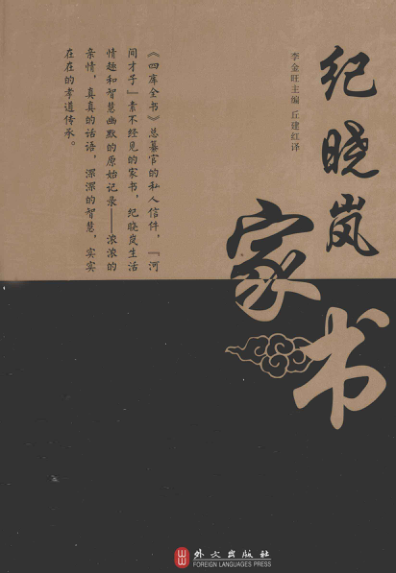 纪晓岚
家
书
李金旺主编 丘建红译
《四库全书》总纂官的私人信件，『河
间才子』素不经见的家书，纪晓岚生活
情趣和智慧幽默的原始记录——浓浓的
亲情，真真的话语，深深的智慧，实实
在在的孝道传承。
外文出版社
FOREIGN LANGUAGES PRESS